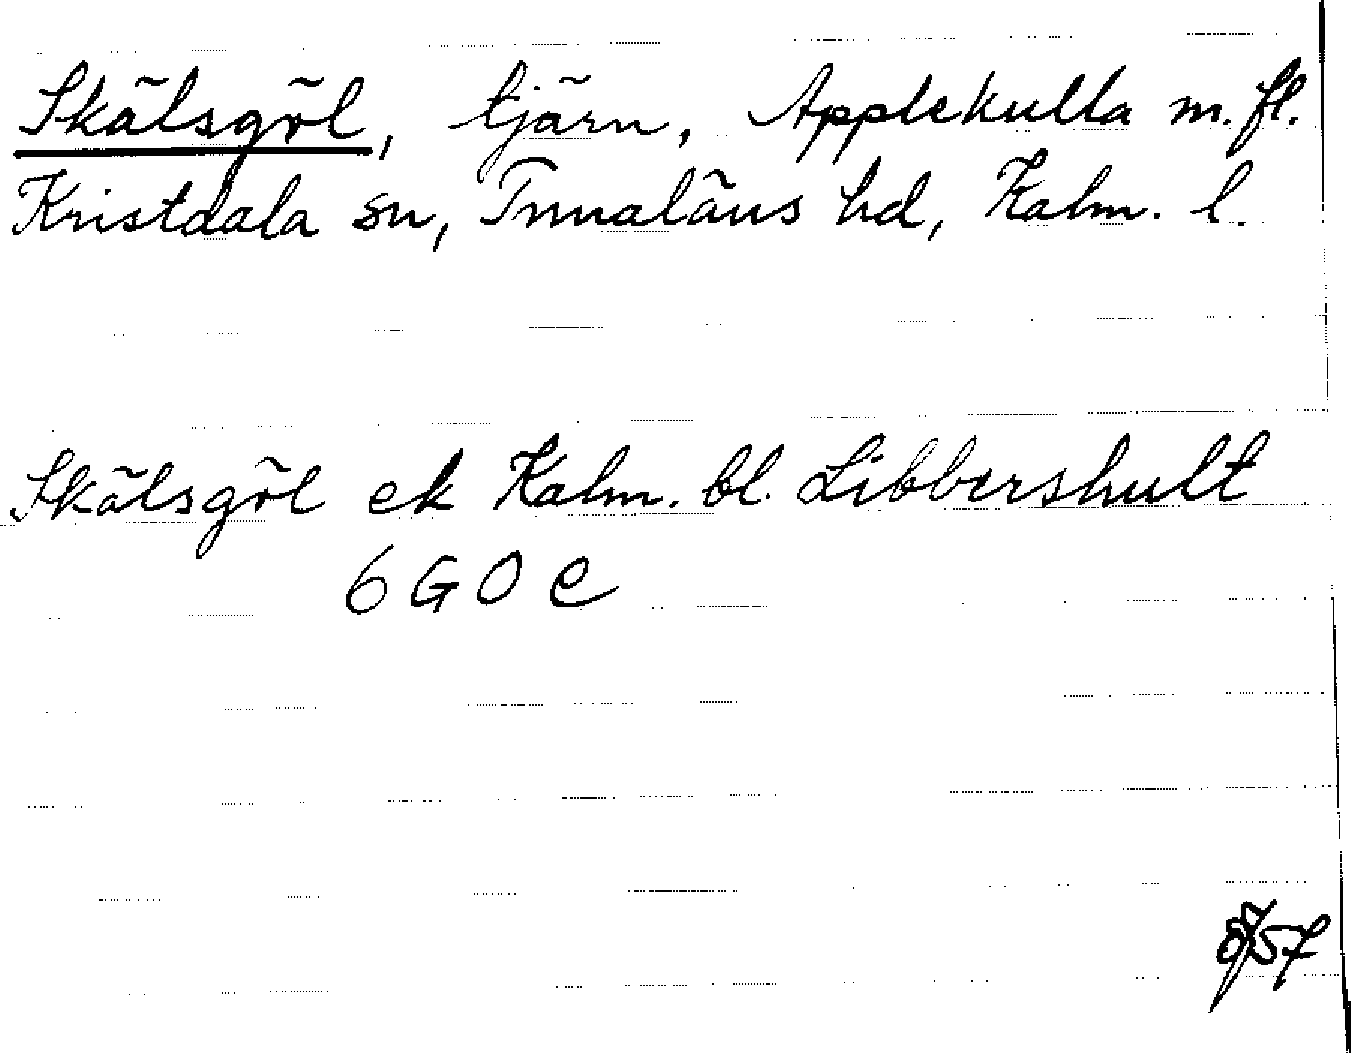 Skälsgöl, tjärn, Applekulla m. fl.
Kristdala sn, Tunaläns hd, Kalm. l.
Skälsgöl ek Kalm. bl. Libbershult
6 G O e